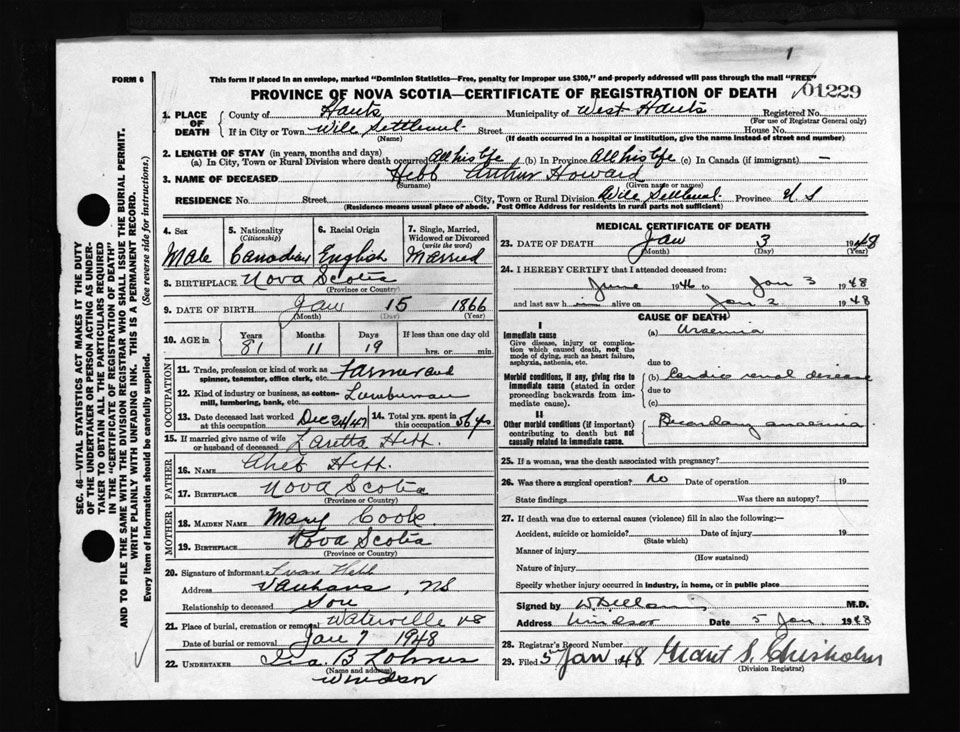 1
FORM 6
This form if placed in an envelope, marked "Dominion Statistics—Free, penalty for improper use $300," and properly addressed will pass through the mail "FREE"
PROVINCE OF NOVA SCOTIA—CERTIFICATE OF REGISTRATION OF DEATH
01229
1. PLACE OF DEATH
County of Hants Municipality of West Hants Registered No.
(For use of Registrar General only)
If in City or Town Street House No.
(Name) (If death occurred in a hospital or institution, give the name instead of street and number)
2. LENGTH OF STAY (in years, months and days)
(a) In City, Town or Rural Division where death occurred All his life (b) In Province All his life (c) In Canada (if immigrant) —
3. NAME OF DECEASED Hebb Arthur Howard
(Surname) (Given name or names)
RESIDENCE No. Street City, Town or Rural Division Province N S
(Residence means usual place of abode. Post Office Address for residents in rural parts not sufficient)
4. Sex Male
5. Nationality (Citizenship) Canadian
6. Racial Origin English
7. Single, Married, Widowed or Divorced (write the word) Married
8. BIRTHPLACE Nova Scotia
(Province or Country)
9. DATE OF BIRTH Jan 15 1866
(Month) (Day) (Year)
10. AGE in Years Months Days If less than one day old
81 11 19 hrs. or min.
OCCUPATION
11. Trade, profession or kind of work as spinner, teamster, office clerk, etc. Farmer and
12. Kind of industry or business, as cotton-mill, lumbering, bank, etc. Lumberman
13. Date deceased last worked at this occupation Dec 24/47
14. Total yrs. spent in this occupation 56 yrs
15. If married give name of wife or husband of deceased Laretta Hebb
FATHER
16. NAME Hebb
17. BIRTHPLACE Nova Scotia
(Province or Country)
MOTHER
18. MAIDEN NAME Mary Cook
19. BIRTHPLACE Nova Scotia
(Province or Country)
20. Signature of informant Ivan Hebb
Address Vaughans, NS
Relationship to deceased Son
21. Place of burial, cremation or removal Waterville NS
Date of burial or removal Jan 7 1948
22. UNDERTAKER Ira B Lohnes
(Name and address)
Windsor
MEDICAL CERTIFICATE OF DEATH
23. DATE OF DEATH Jan 3 1948
(Month) (Day) (Year)
24. I HEREBY CERTIFY that I attended deceased from:
June 1946 to Jan 3 1948
and last saw h im alive on Jan 2 1948
CAUSE OF DEATH
I
Immediate cause (a) Uraemia
Give disease, injury or complication which caused death, not the mode of dying, such as heart failure, asphyxia, asthenia, etc.
due to
Morbid conditions, if any, giving rise to immediate cause (stated in order proceeding backwards from immediate cause).
(b) Cardio renal disease
due to
(c)
II
Other morbid conditions (if important) contributing to death but not causally related to immediate cause.
Secondary anaemia
25. If a woman, was the death associated with pregnancy?
26. Was there a surgical operation? No Date of operation 19
State findings Was there an autopsy?
27. If death was due to external causes (violence) fill in also the following:—
Accident, suicide or homicide? Date of injury 19
(State which)
Manner of injury
(How sustained)
Nature of injury
Specify whether injury occurred in industry, in home, or in public place
Signed by M.D.
Address Windsor Date 5 Jan 1948
28. Registrar's Record Number
29. Filed 5 Jan 1948 Grant S. Chisholm
(Division Registrar)
SEC. 46—VITAL STATISTICS ACT MAKES IT THE DUTY
OF THE UNDERTAKER OR PERSON ACTING AS UNDER-
TAKER TO OBTAIN ALL THE PARTICULARS REQUIRED
IN THE "CERTIFICATE OF REGISTRATION OF DEATH"
AND TO FILE THE SAME WITH THE DIVISION REGISTRAR WHO SHALL ISSUE THE BURIAL PERMIT.
WRITE PLAINLY WITH UNFADING INK. THIS IS A PERMANENT RECORD.
Every item of information should be carefully supplied. (See reverse side for instructions.)